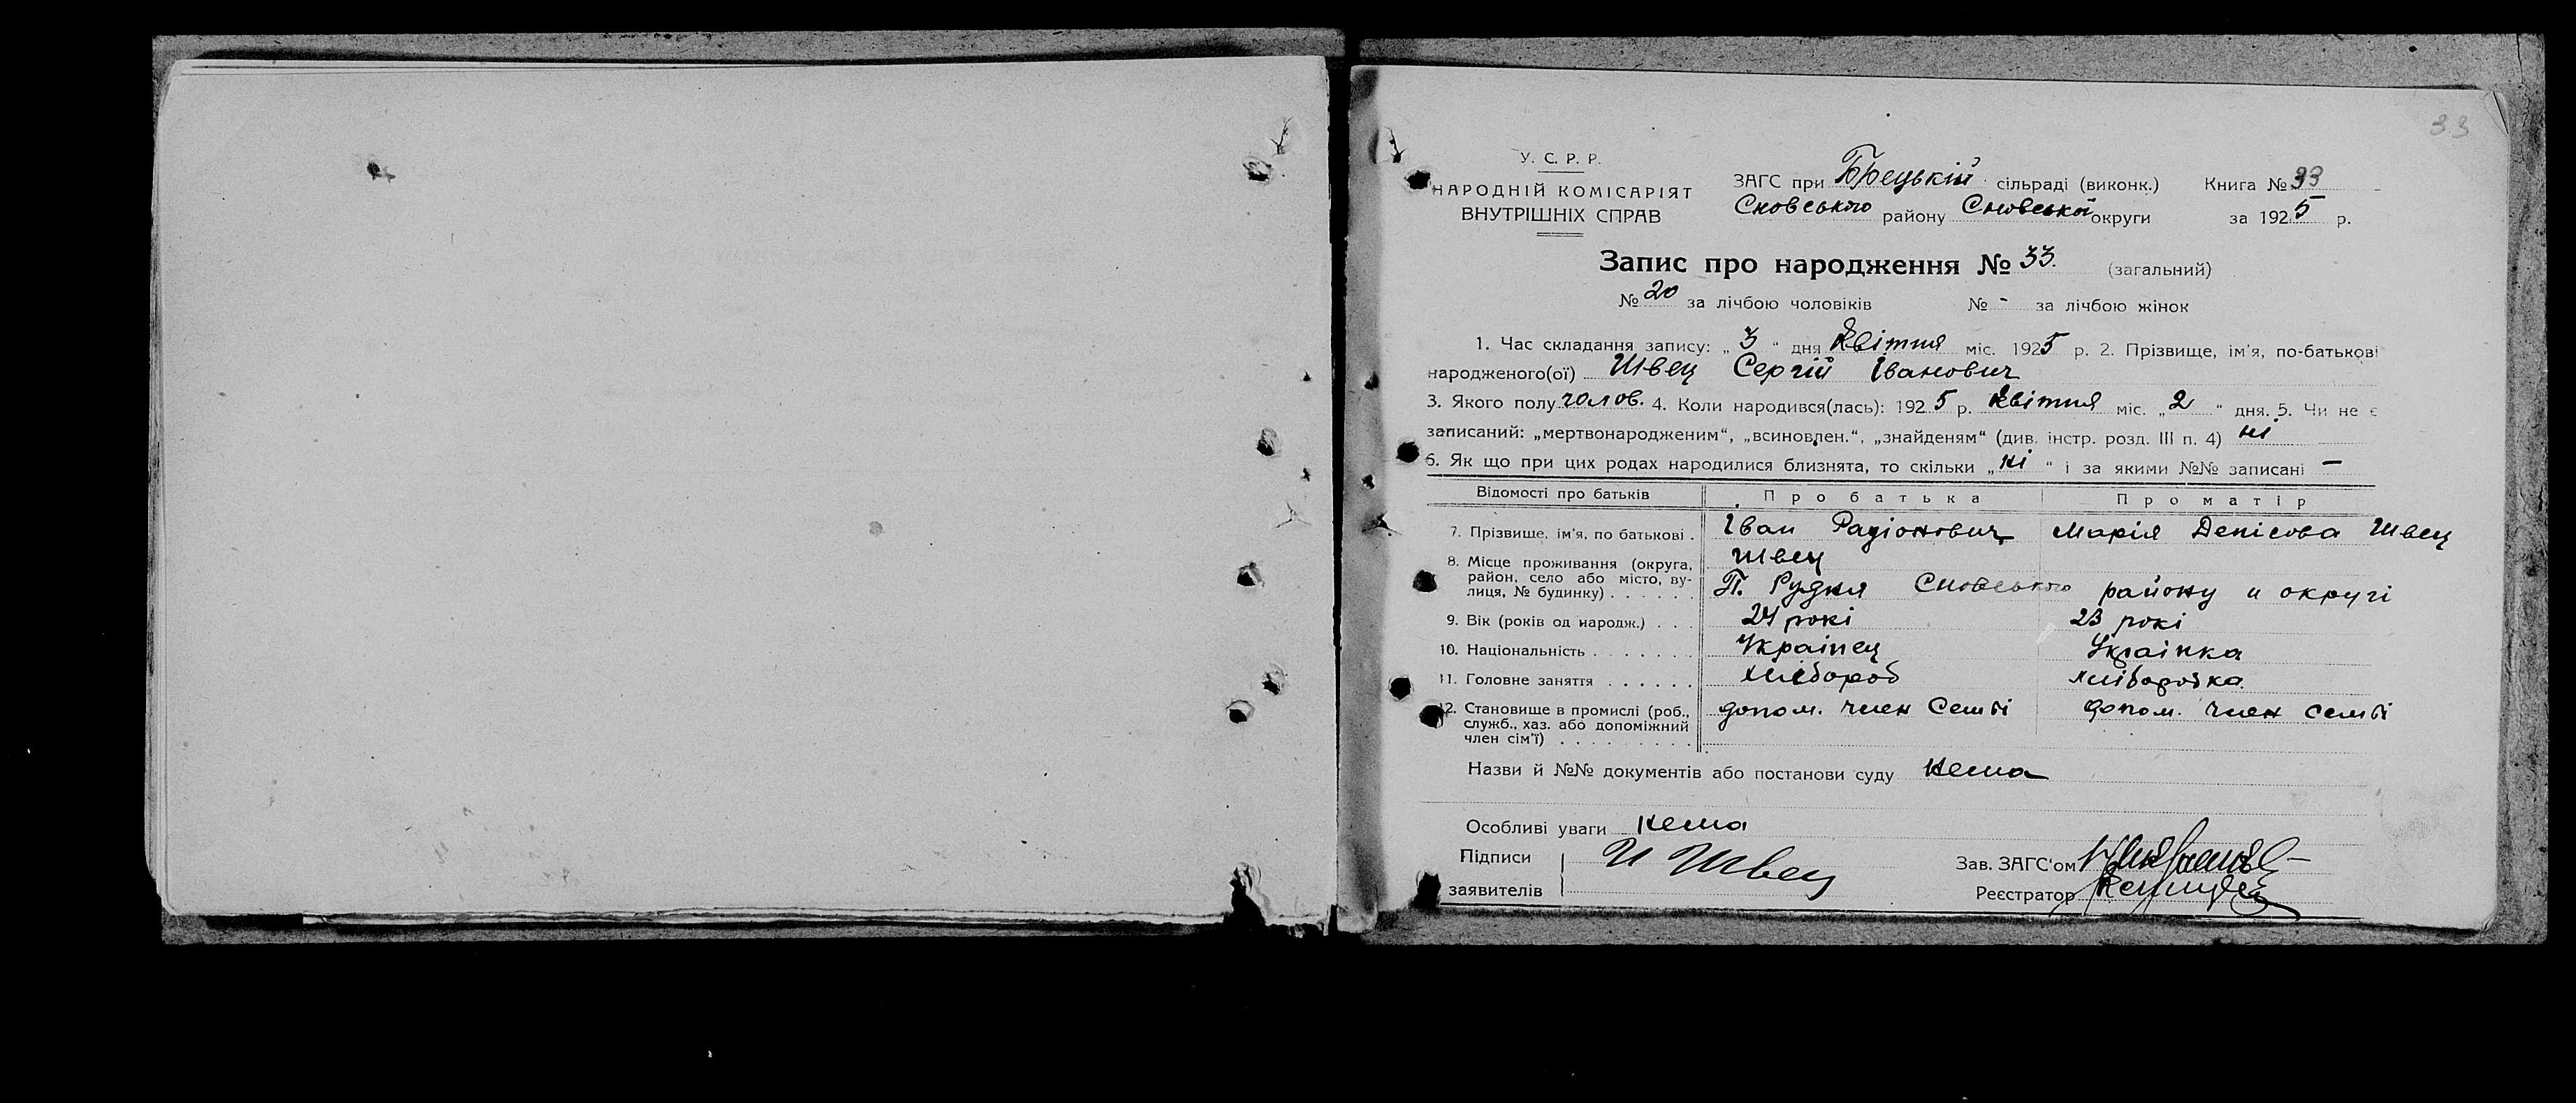 33
У. С. Р. Р.
НАРОДНІЙ КОМІСАРІЯТ
ВНУТРІШНІХ СПРАВ
ЗАГС при Брецькій сільраді (виконк.) Книга № 33
Сновського району Сновської округи за 1925 р.
Запис про народження № 33. (загальний)
№ 20 за лічбою чоловіків № - за лічбою жінок
1. Час складання запису: „ 3 “ дня Квітня міс. 1925 р. 2. Прізвище, ім'я, по-батькові
народженого(ої) Швец Сергій Іванович
3. Якого полу чолов. 4. Коли народився(лась): 1925 р. Квітня міс. „ 2 “ дня. 5. Чи не є
записаний: „мертвонародженим“, „всиновлен.“, „знайденям“ (див. інстр. розд. III п. 4) ні
6. Як що при цих родах народилися близнята, то скільки „ ні “ і за якими №№ записані —
Відомості про батьків Про батька Про матір
7. Прізвище, ім'я, по батькові . Іван Радіонович Швец Марія Денісова Швец
8. Місце проживання (округа, район, село або місто, вулиця, № будинку) . . . . . . П. Рудня Сновського району и округі
9. Вік (років од народж.) . . . 24 рокі 23 рокі
10. Національність . . . . . . . Українец Українка
11. Головне заняття . . . . . . хлібороб хліборобка
12. Становище в промислі (роб., служб., хаз. або допоміжний член сім'ї) . . . . . . . . . допом. член семьі допом. член семьі
Назви й №№ документів або постанови суду нема
Особливі уваги нема
Підписи И Швец
заявителів
Зав. ЗАГС'ом
Реєстратор